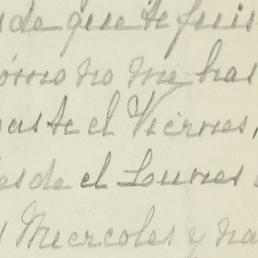 de que te fuis
ómo no me has
aste el Viernes,
esde el Lunes
Miercoles y ha